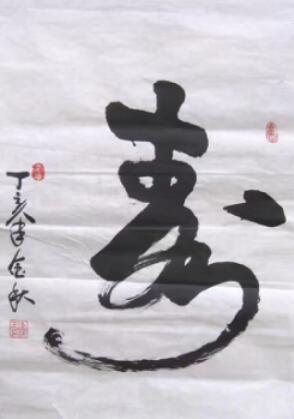 寿
丁亥年金秋